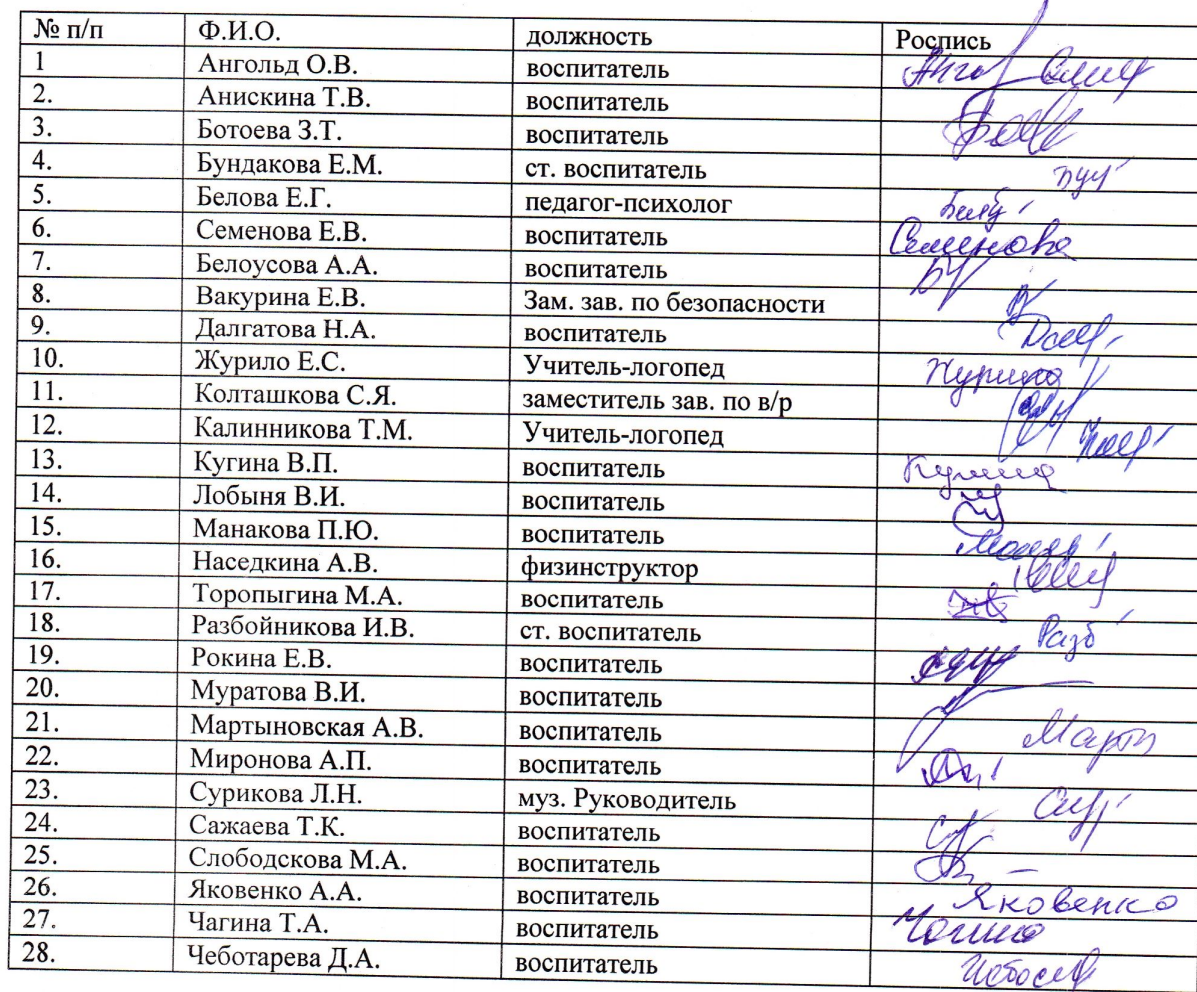 № п/п Ф.И.О. должность Роспись
1 Ангольд О.В. воспитатель
2. Анискина Т.В. воспитатель
3. Ботоева З.Т. воспитатель
4. Бундакова Е.М. ст. воспитатель
5. Белова Е.Г. педагог-психолог
6. Семенова Е.В. воспитатель Семенова
7. Белоусова А.А. воспитатель
8. Вакурина Е.В. Зам. зав. по безопасности
9. Далгатова Н.А. воспитатель
10. Журило Е.С. Учитель-логопед
11. Колташкова С.Я. заместитель зав. по в/р
12. Калинникова Т.М. Учитель-логопед
13. Кугина В.П. воспитатель
14. Лобыня В.И. воспитатель
15. Манакова П.Ю. воспитатель
16. Наседкина А.В. физинструктор
17. Торопыгина М.А. воспитатель
18. Разбойникова И.В. ст. воспитатель Разб
19. Рокина Е.В. воспитатель
20. Муратова В.И. воспитатель
21. Мартыновская А.В. воспитатель
22. Миронова А.П. воспитатель
23. Сурикова Л.Н. муз. Руководитель
24. Сажаева Т.К. воспитатель
25. Слободскова М.А. воспитатель
26. Яковенко А.А. воспитатель Яковенко
27. Чагина Т.А. воспитатель
28. Чеботарева Д.А. воспитатель